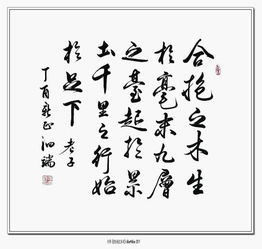 合抱之木生
於毫末九層
之臺起於累
土千里之行始
於足下 老子
丁酉新正泗瑞